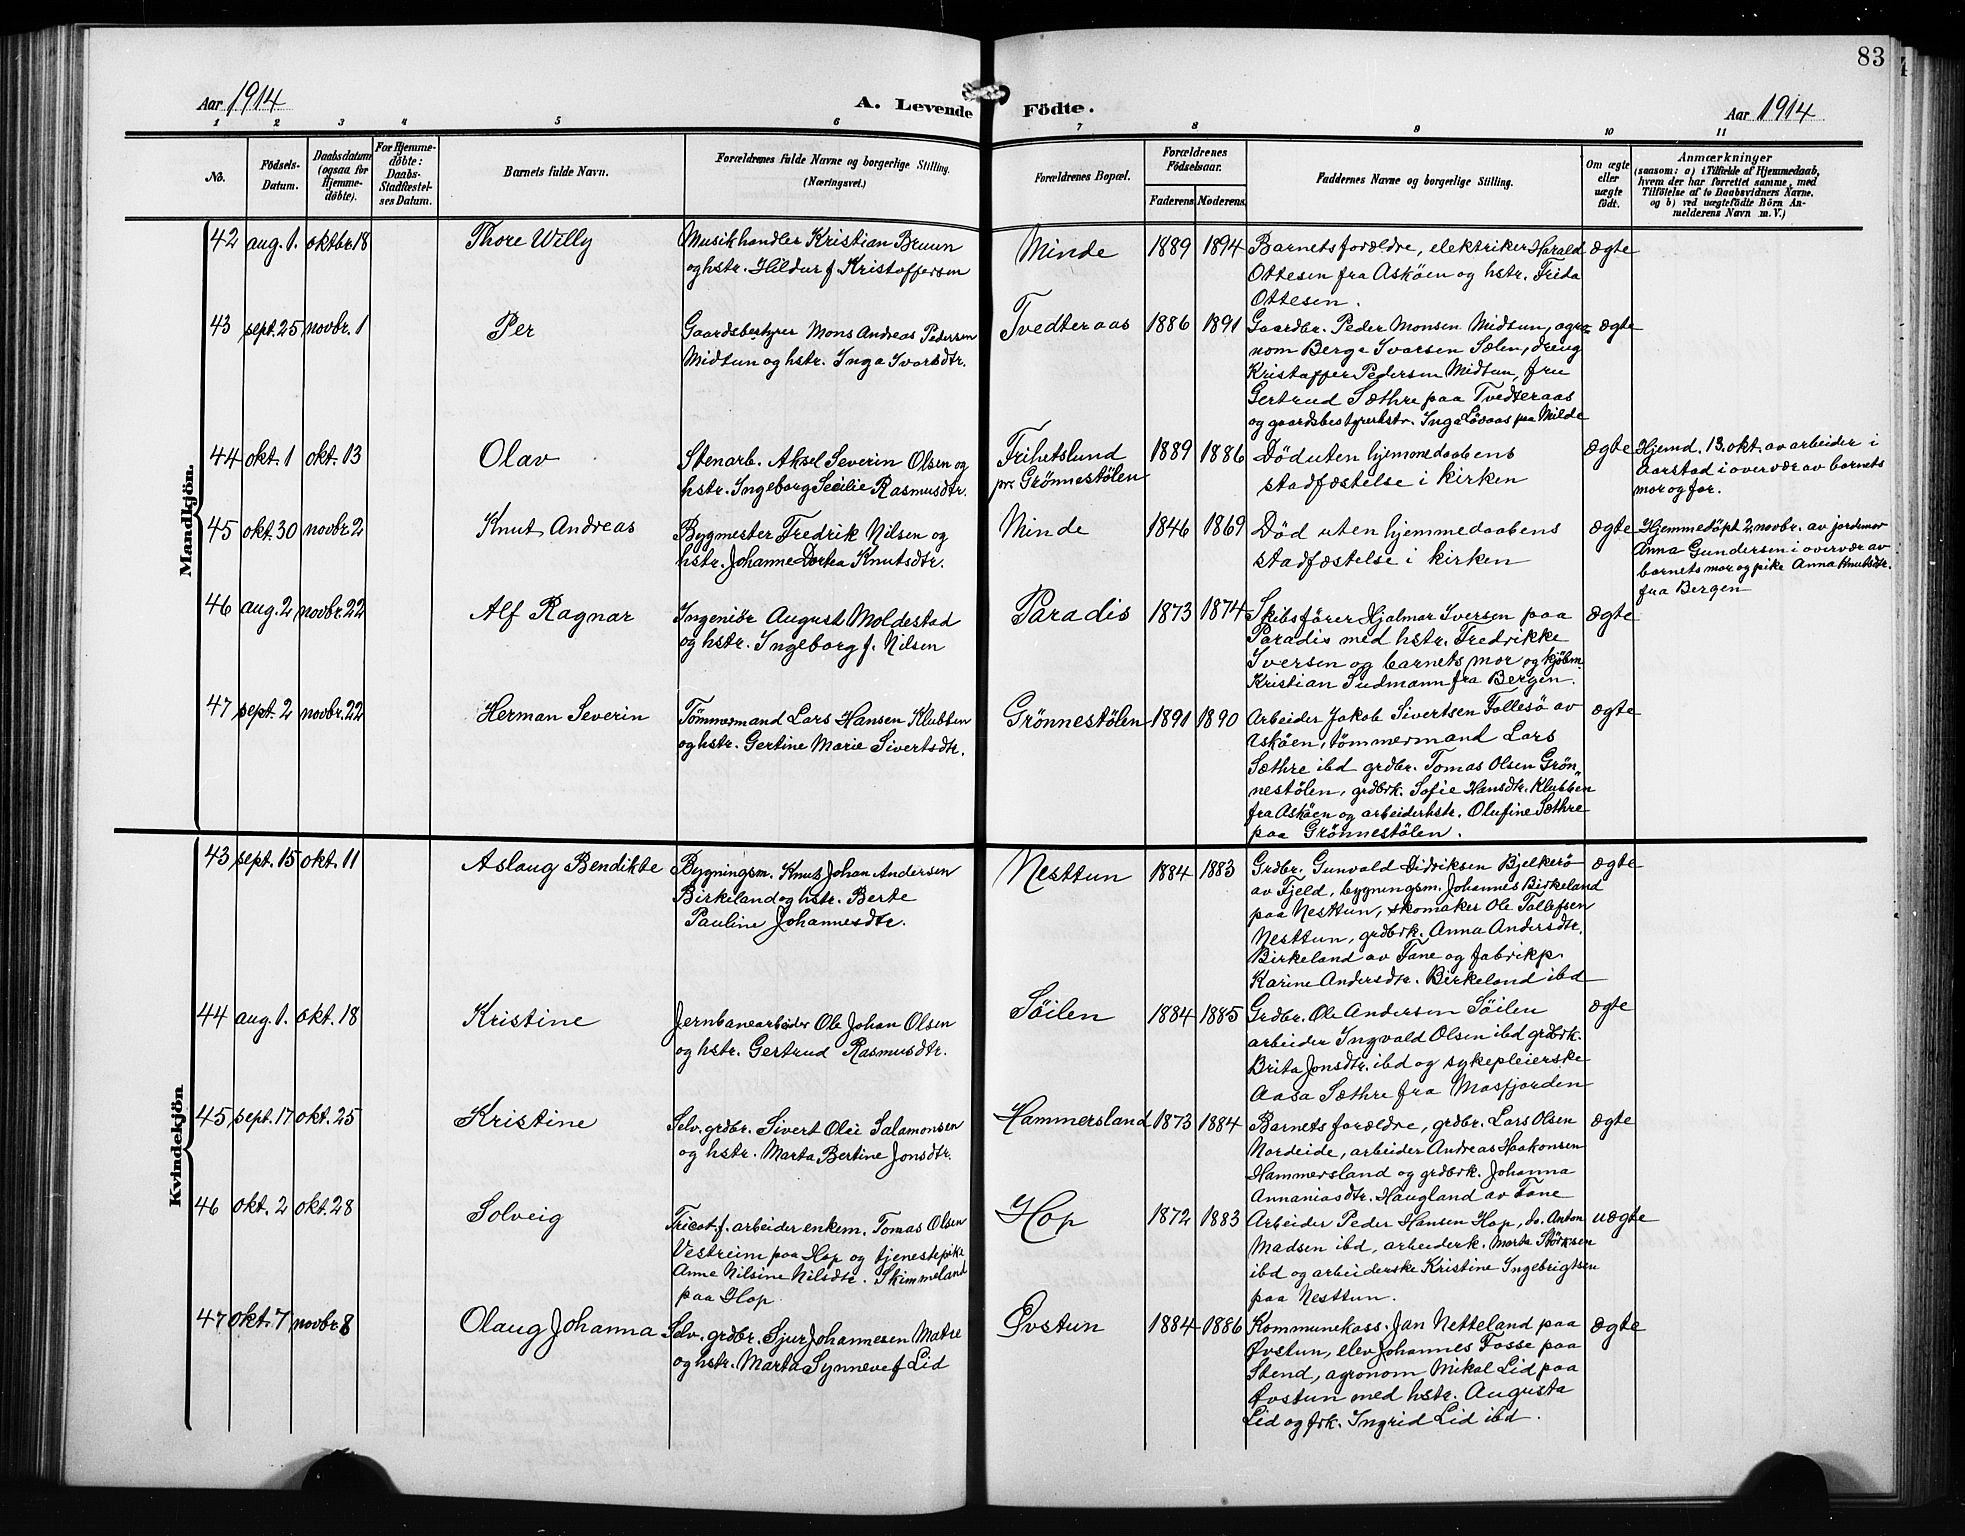 83
Aar 1914
A. Levende Födte.
Aar 1914
1 2 3 4 5 6 7 8 9 10 11
No.
Födsels-
Datum.
Daabsdatum
(ogsaa for
Hjemme-
döbte).
For Hjemme-
döbte:
Daabs-
Stadfæstel-
ses Datum.
Barnets fulde Navn.
Forældrenes fulde Navne og borgerlige Stilling.
(Næringsvei.)
Forældrenes Bopæl.
Forældrenes
Födselsaar.
Faderens Moderens
Faddernes Navne og borgerlige Stilling.
Om ægte
eller
uægte
födt.
Anmærkninger
(saasom: a) i Tilfælde af Hjemmedaab,
hvem der har forrettet samme, med
Tilföielse af to Daabsvidners Navne,
og b) ved uægtefödte Börn An-
melderens Navn m. V.)
Mandkjön.
42 aug. 1. oktbr. 18 Thore Willy
Musikhandler Kristian Bruun
og hstr. Hildur f. Kristoffersen
Minde 1889 1894
Barnets forældre, elektriker Harald
Ottesen fra Asköen og hstr. Frida
Ottesen.
ægte
43 sept. 25 novbr. 1 Per
Gaardsbestyrer Mons Andreas Pedersen
Midtun og hstr. Inga Ivarsdtr.
Tvedteraas 1886 1891
Gaardbr. Peder Monsen Midtun, agro-
nom Berge Ivarsen Sælen, dreng
Kristoffer Pedersen Midtun, fru
Gertrud Sæthre paa Tvedteraas
og gaardsbestyrerhstr. Inga Lösaas paa Milde
ægte
44 okt. 1 okt. 13 Olav
Stenarb. Aksel Severin Olsen og
hstr. Ingeborg Secilie Rasmusdtr.
Frihetslund
pr Grönnestölen
1889 1886
Död uten hjemmedaabens
stadfæstelse i kirken
ægte
Hjemd. 13. okt. av arbeider i
Aarstad i overvær av barnets
mor og far.
45 okt. 30 novbr. 2 Knut Andreas
Bygmester Fredrik Nilsen og
hstr. Johanne Dorkea Knutsdtr.
Minde 1846 1869
Död uten hjemmedaabens
stadfæstelse i kirken
ægte
Hjemmedöpt 2. novbr. av jordemor
Anna Gundersen i overvær av
barnets mor og pike Anna Knutsdtr.
fra Bergen
46 aug. 2 novbr. 22 Alf Ragnar
Ingeniör August Moldestad
og hstr. Ingeborg f. Nilsen
Paradis 1873 1874
Skibsförer Hjalmar Iversen paa
Paradis med hstr. Fredrikke
Iversen og barnets mor og kjöbm.
Kristian Sudmann fra Bergen.
ægte
47 sept. 2 novbr. 22 Herman Severin
Tömmermand Lars Hansen Klubben
og hstr. Gertine Marie Sivertsdtr.
Grönnestölen 1891 1890
Arbeider Jakob Sivertsen Follesö av
Asköen, tömmermand Lars
Sæthre ibd grdbr. Tomas Olsen Grön-
nestölen, grdbrk. Sofie Hansdtr. Klubben
fra Asköen og arbeiderhstr. Olufine Sæthre
paa Grönnestölen.
ægte
Kvindekjön
43 sept. 15 okt. 11 Aslaug Bendikte
Bygningsm. Knut Johan Andersen
Birkeland og hstr. Berte
Pauline Johannesdtr.
Nesttun 1884 1883
Grdbr. Gunvald Didriksen Bjelkerö
av Fjeld, bygningsm. Johannes Birkeland
paa Nesttun, skomaker Ole Tollefsen
Nesttun, grdbrk. Anna Andersdtr.
Birkeland av Fane og fabrikkp.
Karine Andersdtr. Birkeland ibd
ægte
44 aug. 1. okt. 18 Kristine
Jernbanearbeider Ole Johan Olsen
og hstr. Gertrud Rasmusdtr.
Söilen 1884 1885
Grdbr. Ole Andersen Söilen
arbeider Ingvald Olsen ibd grdbrk.
Brita Jonsdtr. ibd og sykepleierske
Aasa Sæthre fra Masfjorden
ægte
45 sept. 17 okt. 25 Kristine
Selv. grdbr. Sivert Olai Salamonsen
og hstr. Marta Bertine Jonsdtr.
Hammersland 1873 1884
Barnets forældre, grdbr. Lars Olsen
Nordeide, arbeider Andreas Haakonsen
Hammersland og grdbrk. Johanna
Annaniasdtr. Haugland av Fane
ægte
46 okt. 2 okt. 28 Solveig
Tricot.f. arbeider enkem. Tomas Olsen
Vestreim paa Hop og tjenestepike
Anne Nilsine Nilsdtr. Skimmeland
paa Hop.
Hop 1872 1883
Arbeider Peder Hansen Hop, do. Anton
Madsen ibd, arbeiderk. Marta Störksen
ibd og arbeiderske Kristine Ingebrigtsen
paa Nesttun.
uægte
47 okt. 7 novbr. 8 Olaug Johanna
Selv. grdbr. Sjur Johannesen Matre
og hstr. Marta Synneve f Lid
Øvstun 1884 1886
Kommunekass. Jan Netteland paa
Øvstun, elev Johannes Fosse paa
Stend, agronom Mikal Lid paa
Øvstun med hstr. Augusta
Lid og frk. Ingrid Lid ibd.
ægte